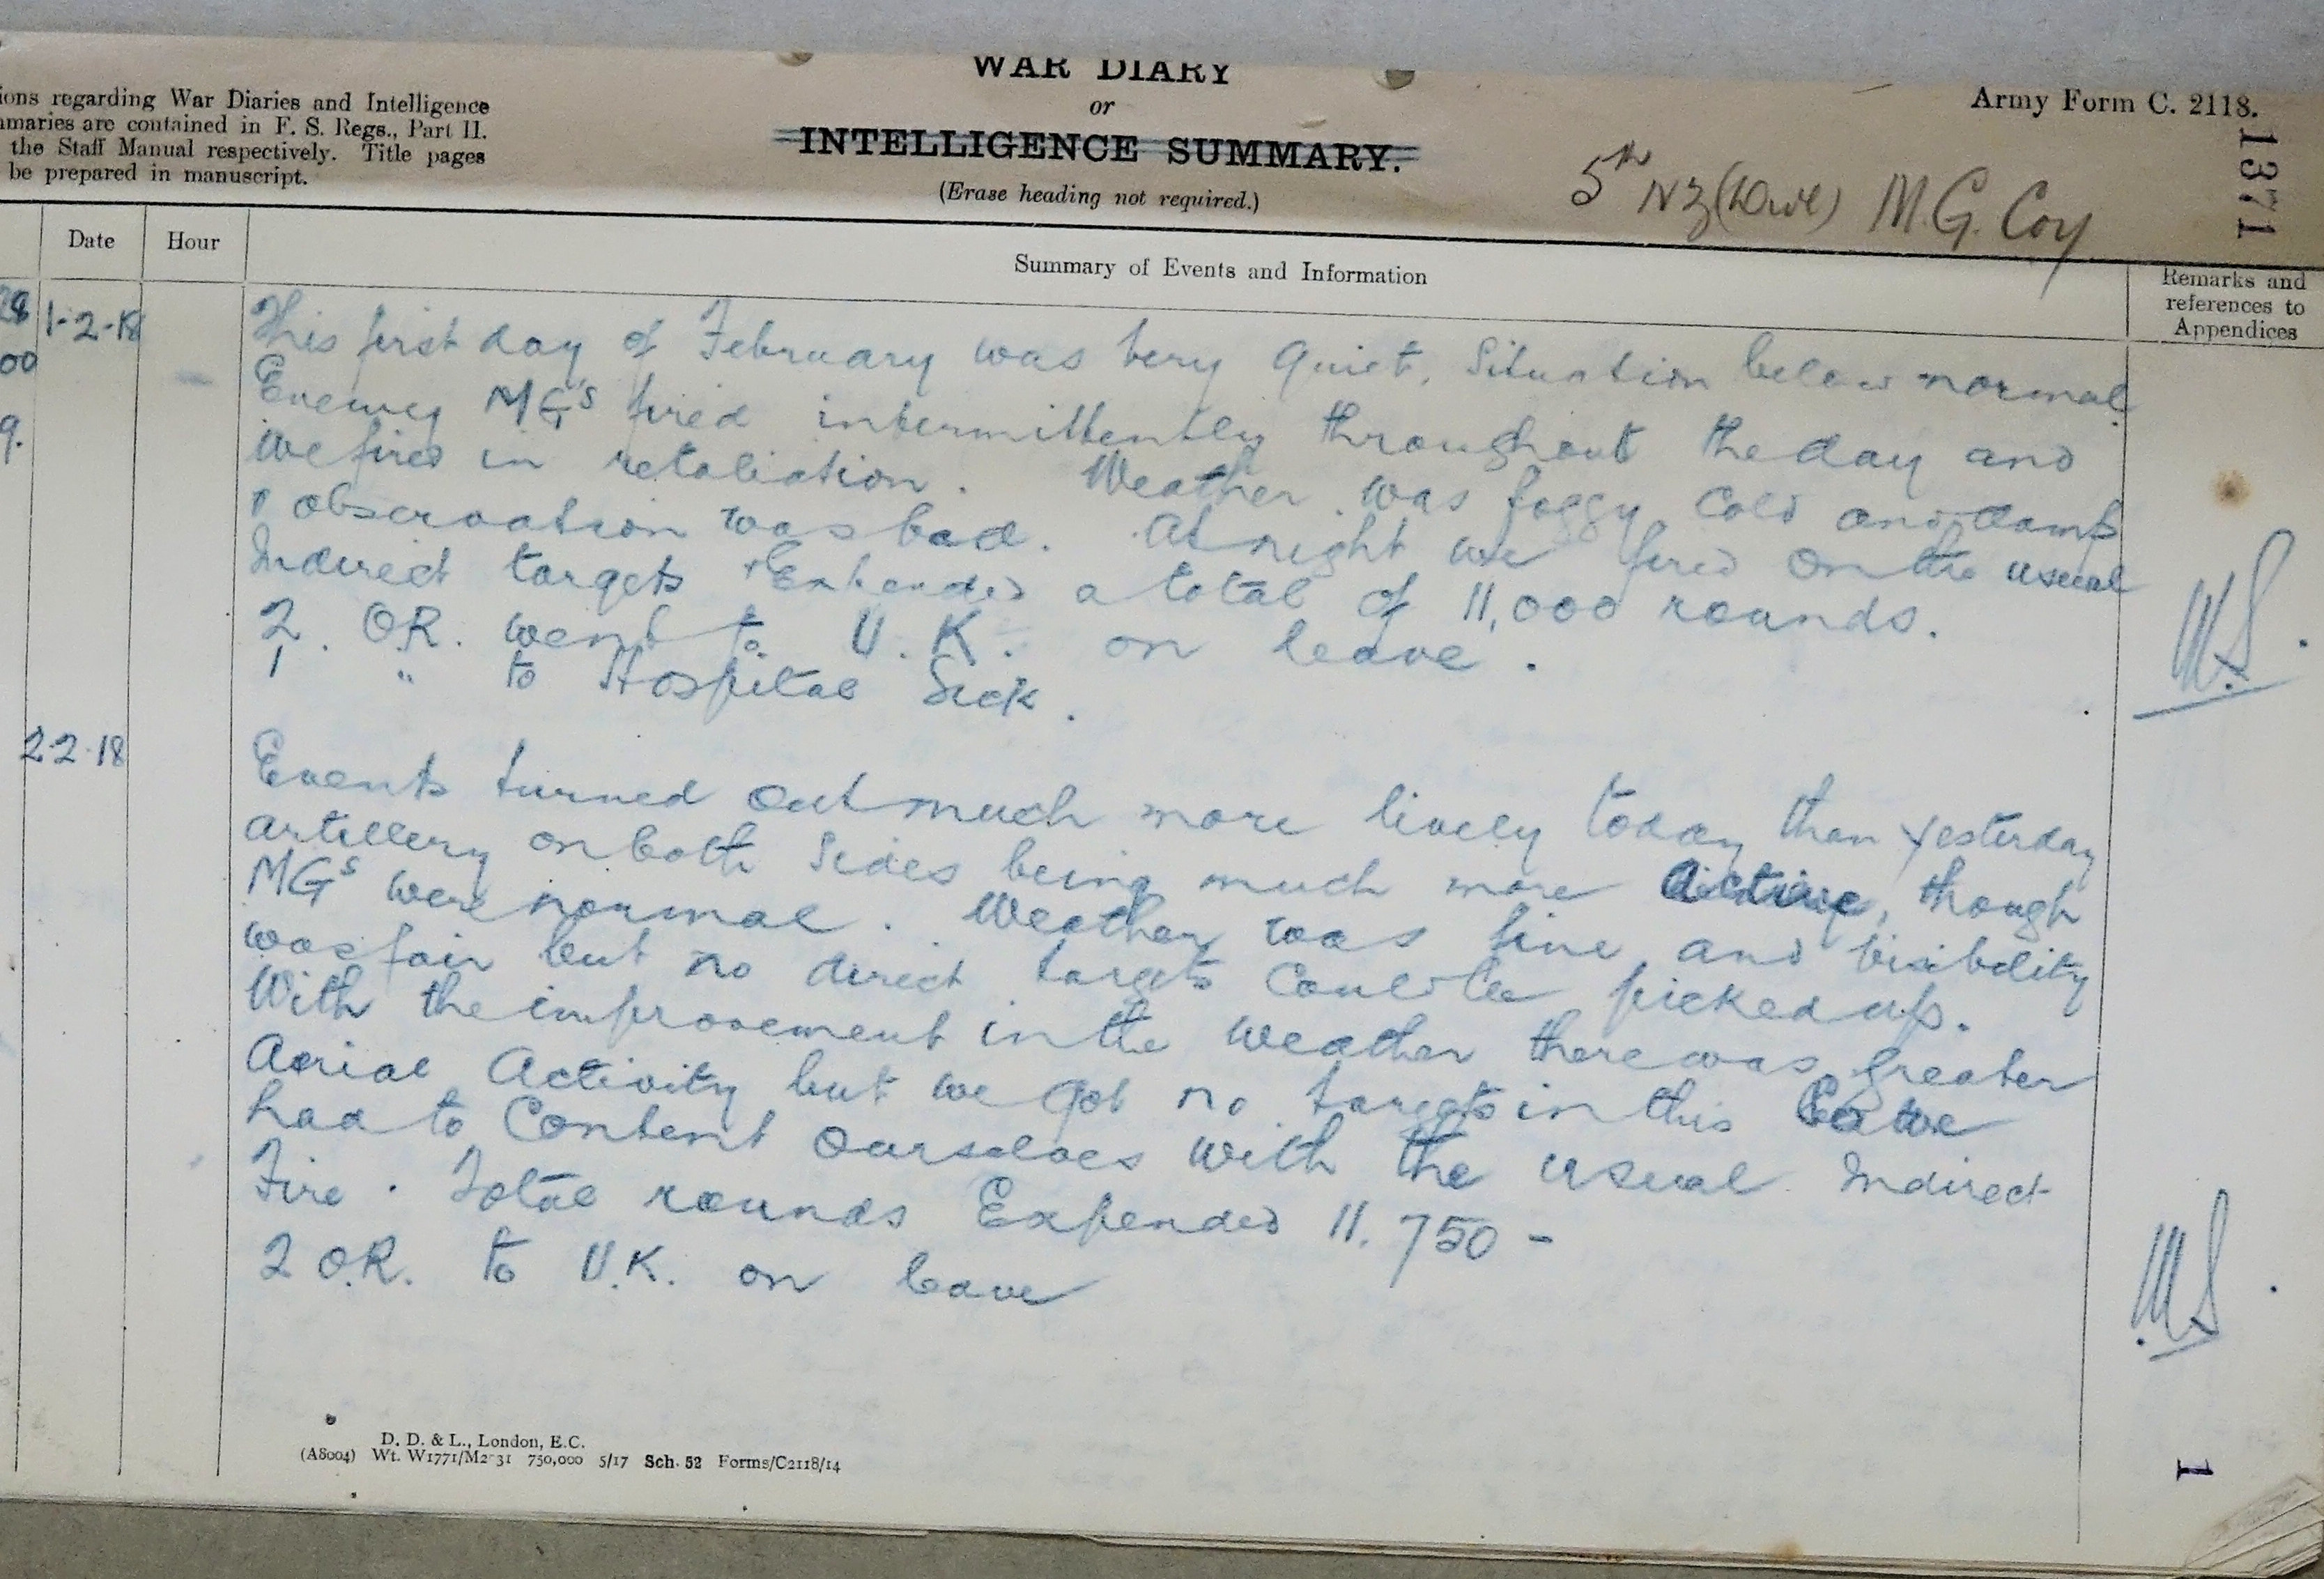 WAR DIARY
or
INTELLIGENCE SUMMARY.
(Erase heading not required.)
ions regarding War Diaries and Intelligence
mmaries are contained in F. S. Regs., Part II.
the Staff Manual respectively. Title pages
be prepared in manuscript.
Army Form C. 2118.
1371
5th NZ (Divl) M.G. Coy
Date
Hour
Summary of Events and Information
Remarks and
references to
Appendices
00
9.
1-2-18
This first day of February was very quiet. Situation below normal.
Enemy MG's fired intermittently throughout the day and
we fired in retaliation. Weather was foggy cold and damp
& observation was bad. At night we fired on the usual
Indirect targets & Expended a total of 11,000 rounds.
2. O.R. went to U.K. on leave.
1 " to Hospital Sick.
MS.
2 2.18
Events turned out much more lively today than yesterday
artillery on both sides being much more active, though
MGs were normal. Weather was fine and visibility
was fair but no direct targets could be picked up.
With the improvement in the weather there was greater
Aerial Activity but we got no targets in this so we
had to Content ourselves with the usual Indirect
Fire. Total rounds Expended 11.750 -
2 O.R. to U.K. on leave
MS.
D. D. & L., London, E.C.
(A8004) Wt. W1771/M2 31 750,000 5/17 Sch. 52 Forms/C2118/14
1